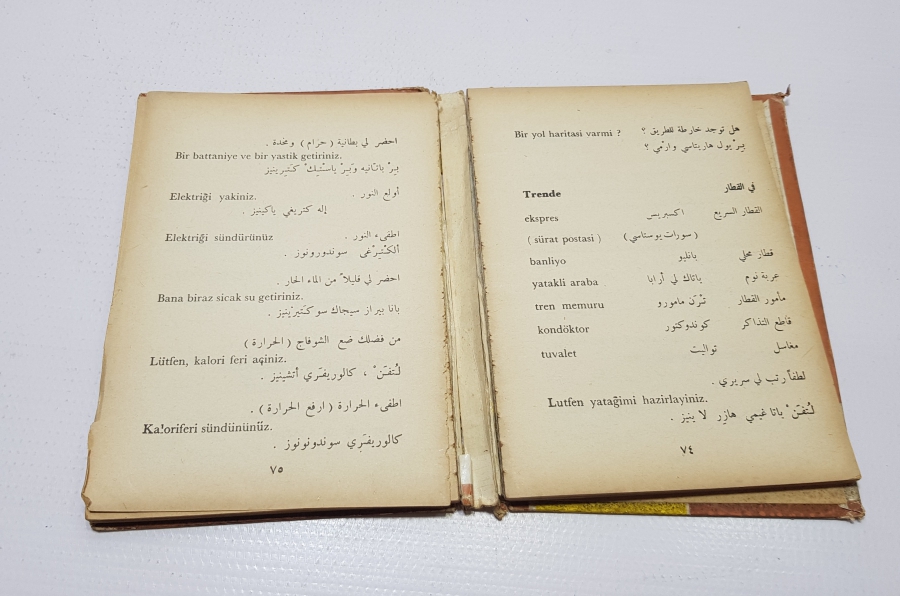 هل توجد خارطة للطريق ؟
Bir yol haritasi varmi ?
بيرْ يول هاريتاسي وارْمي ؟
في القطار
Trende
القطار السريع اكسبريس ekspres
(سورات پوستاسي) ( sürat postasi )
قطار محلي بانليو banliyo
عربة نوم ياتاك لي أرابا yatakli araba
مأمور القطار ترَن مامورو tren memuru
قاطع التذاكر كوندوكتور kondöktor
مغاسل تواليت tuvalet
لطفاً رتب لي سريري .
Lutfen yatağimi hazirlayiniz.
لُتفنْ ياتاغيمي هازِر لايِنيز .
٧٤
احضر لي بطانية ( حرام ) ومخدة .
Bir battaniye ve bir yastik getiriniz.
بيرْ باتّانيه وَبيرْ ياسْتيكْ كَتيرينيز
أولع النور .
Elektriği yakiniz.
إله كتريغي ياكينيز .
اطفىء النور .
Elektriği sündürünüz
ألكْتيرْغى سوندورونوز .
احضر لي قليلاً من الماء الحار .
Bana biraz sicak su getiriniz.
بانا بيراز سيجاك سو كتيرينيز .
من فضلك ضع الشوفاج ( الحرارة )
Lütfen, kalori feri açiniz.
لُتفنْ ، كالوريفَري أتشينيز .
اطفىء الحرارة ( ارفع الحرارة ) .
Kaloriferi sündününüz.
كالوريفَري سوندونونوز .
٧٥